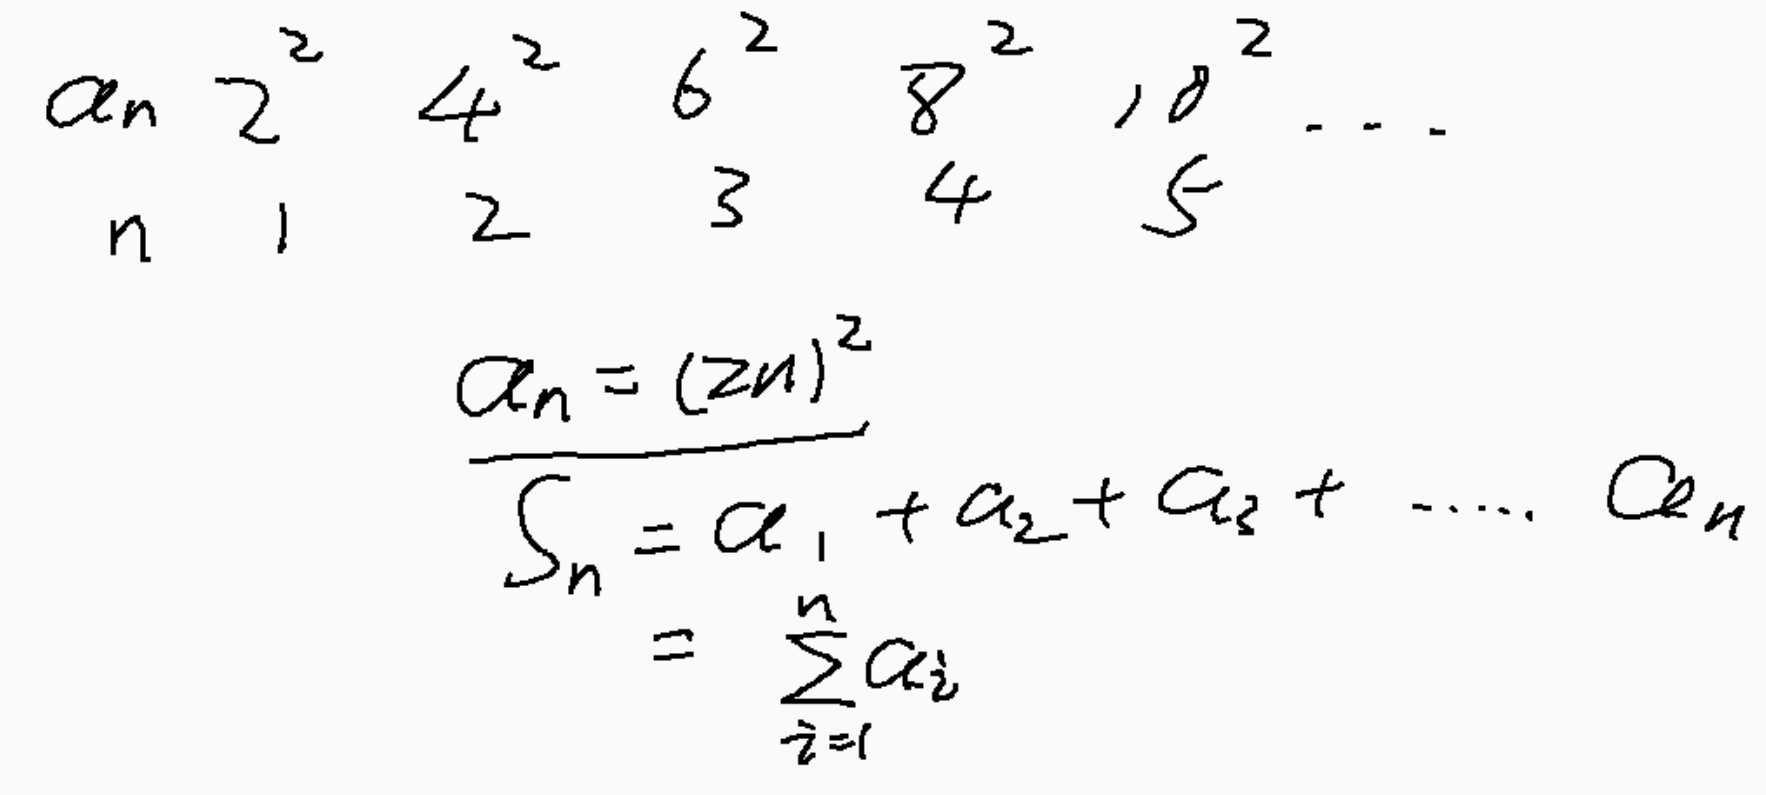 aₙ 2² 4² 6² 8² 10² ....
n 1 2 3 4 5
aₙ = (2n)²
Sₙ = a₁ + a₂ + a₃ + ..... aₙ
= ∑ⁿᵢ₌₁ aᵢ